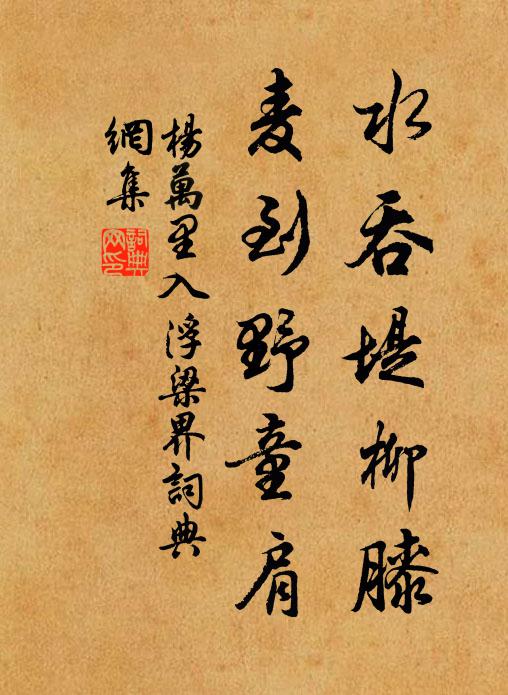 水吞堤柳膝
麦到野童肩
楊萬里入浮梁界詞典
網集
詞典
网印